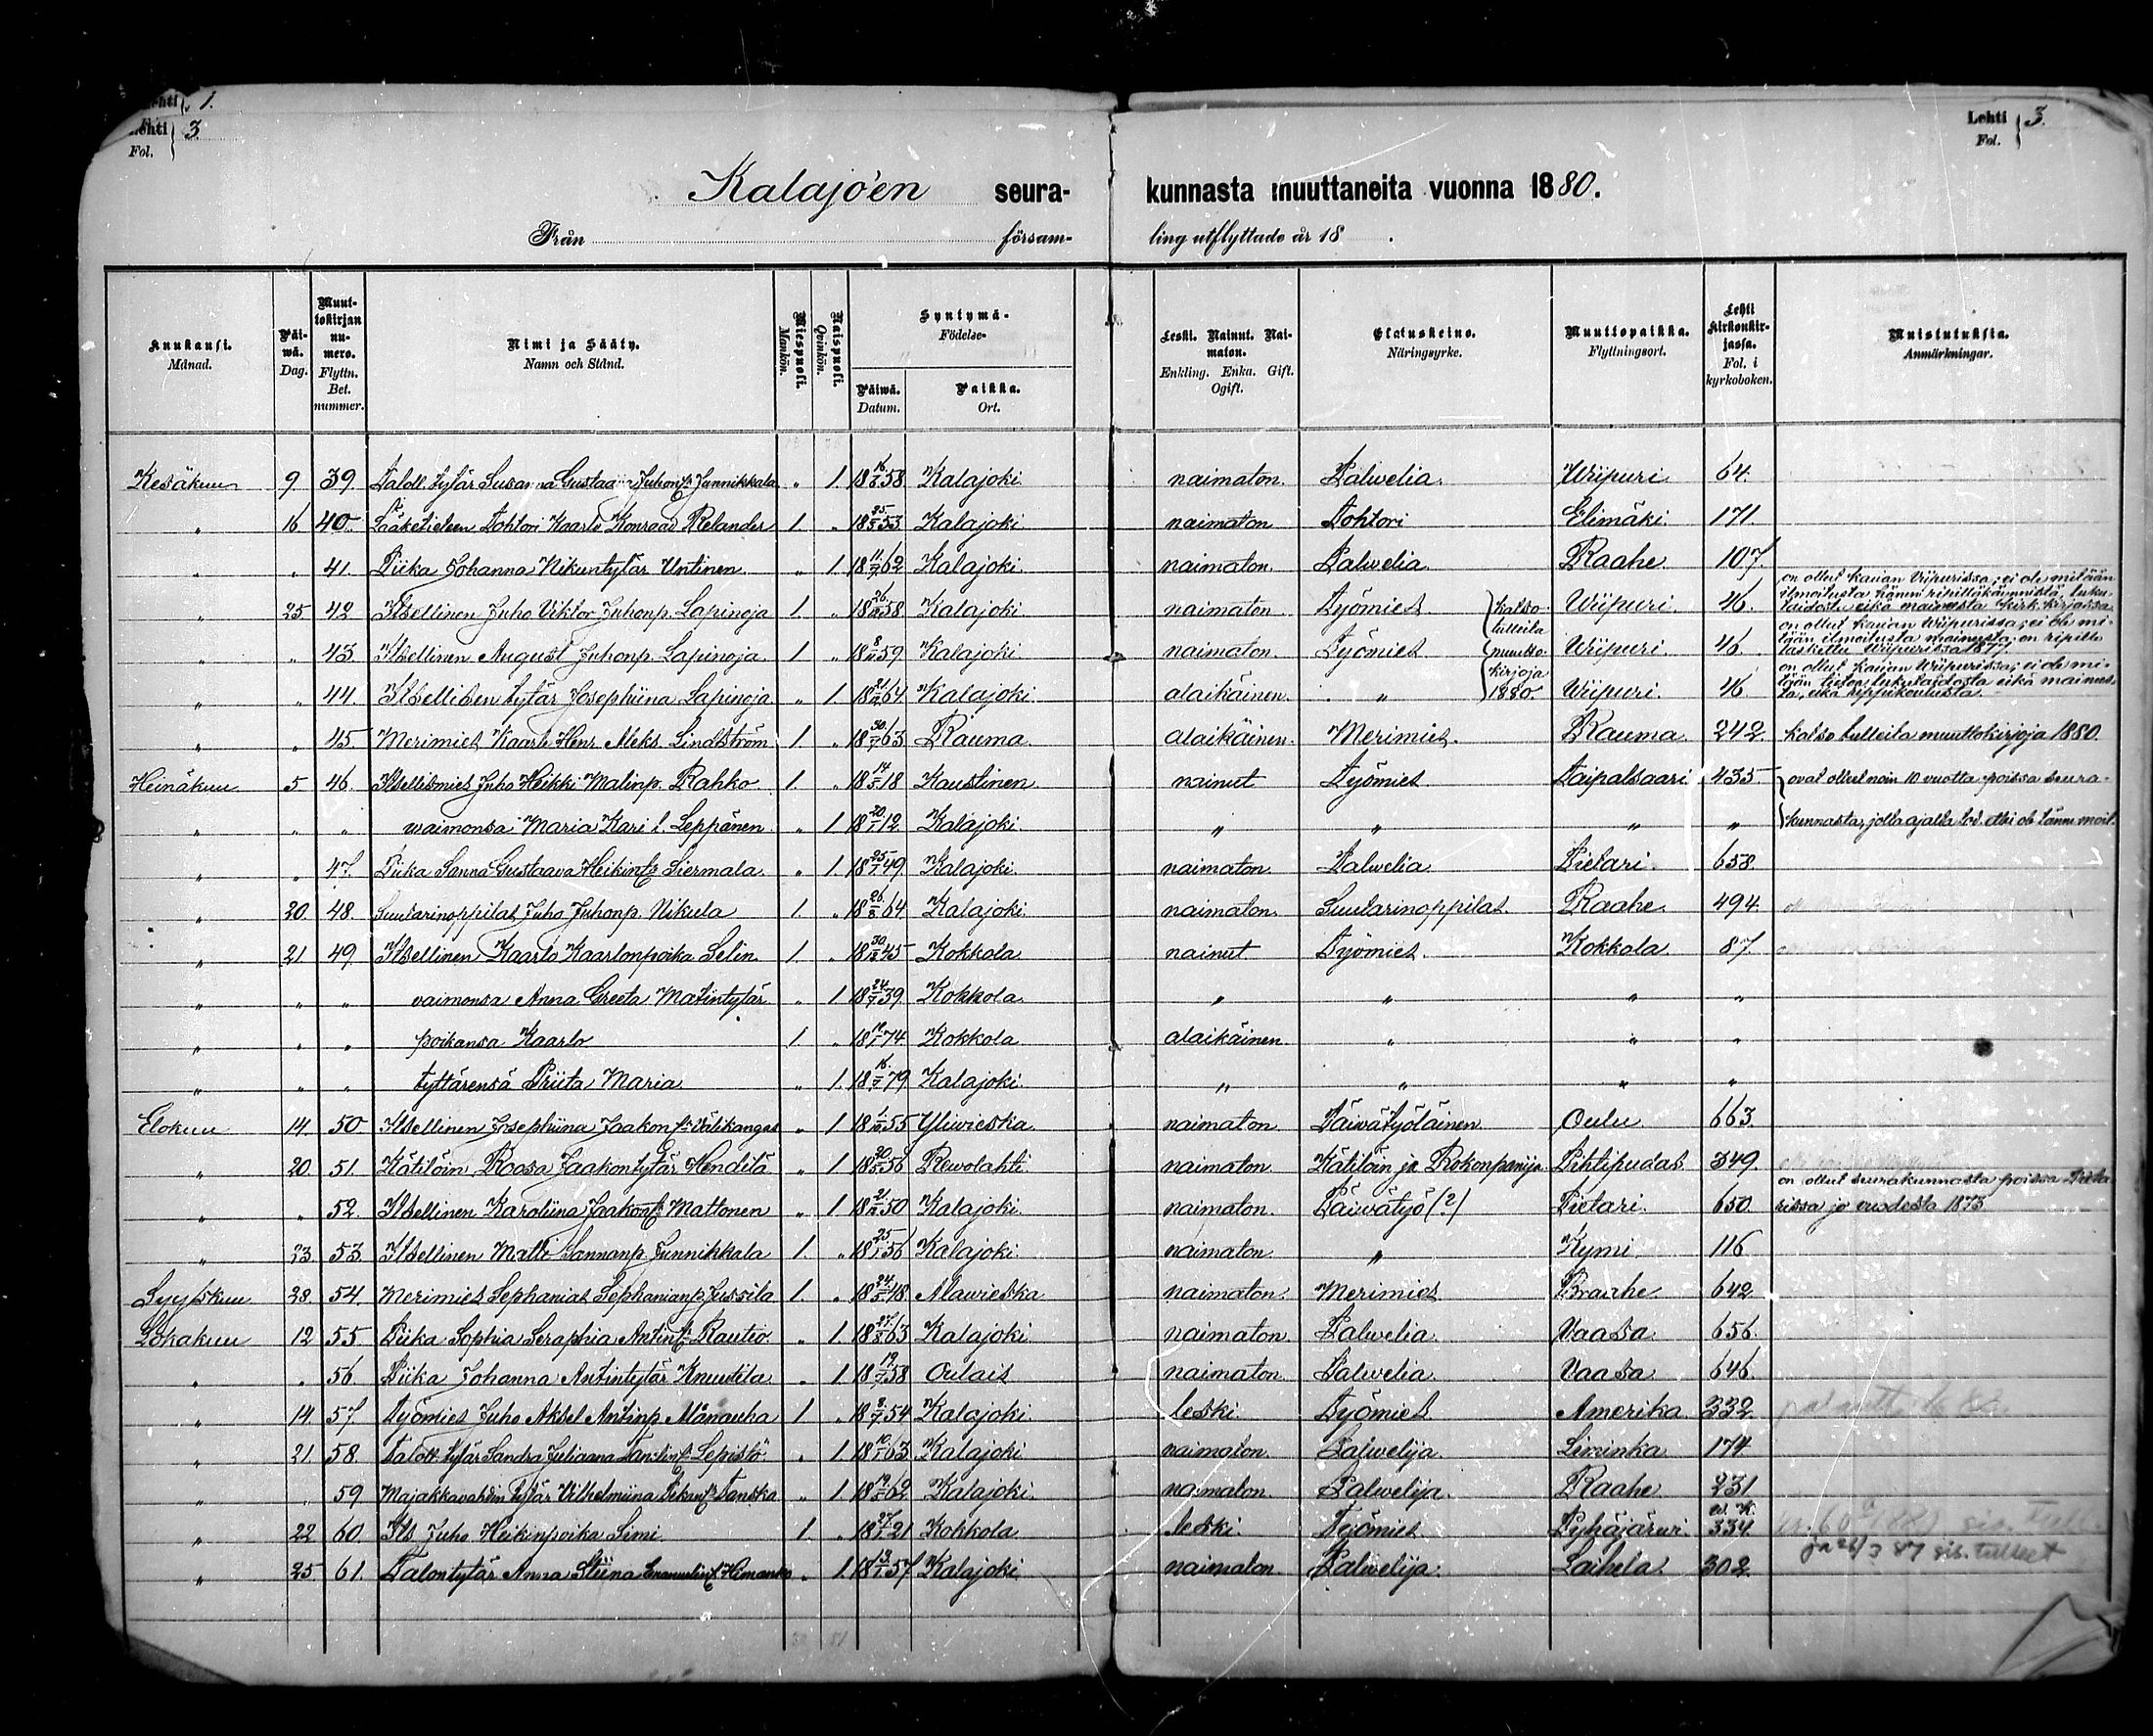 Lehti 1.
Lehti 3.
Fol.
Lehti 3.
Fol.
Kalajoen seura- kunnasta muuttaneita vuonna 1880.
Från försam- ling utflyttade år 18 .
Kuukausi. Månad.
Päiwä. Dag.
Muuttokirjan numero. Flyttn. Bet. nummer.
Nimi ja Sääty. Namn och Stånd.
Miespuoli. Mankön.
Naispuoli. Qvinkön.
Syntymä- Födelse-
Päiwä. Datum.
Paikka. Ort.
Leski. Nainut. Naimaton. Enkling. Enka. Gift. Ogift.
Elatuskeino. Näringsyrke.
Muuttopaikka. Flyttningsort.
Lehti Kirkonkirjassa. Fol. i kyrkoboken.
Muistutuksia. Anmärkningar.
Kesäkuu 9 39 Taloll. tytär Susanna Gustaava Juhont. Junnikkala „ 1. 58 Kalajoki naimaton Palwelia. Wiipuri 64.
„ 16 40. Lääketieteen Tohtori Kaarlo Konraad Relander 1. „ 18 25/5 53 Kalajoki naimaton Tohtori Elimäki 171.
„ „ 41. Piika Johanna Nikuntytär Untinen „ 1. 62 Kalajoki naimaton Palwelia Raahe 107.
„ 25 42 Itsellinen Juho Viktor Juhonp. Lapinoja 1. „ 58 Kalajoki naimaton Työmies katso tulleita Wiipuri 46. on ollut kauan Wiipurissa; ei ole mitään ilmoitusta hänen ripilläkäynnistä, lukutaidosta eikä maineesta kirk. kirjassa
„ „ 43. Itsellinen August Juhonp. Lapinoja 1 „ 59 Kalajoki naimaton Työmies muutto- Wiipuri 46 on ollut kauan Wiipurissa; ei ole mitään ilmoitusta maineesta; on ripille laskettu Wiipurissa 1877
„ „ 44. Itsellisen tytär Josephiina Lapinoja „ 1. 64 Kalajoki alaikäinen. „ kirjoja 1880. Wiipuri 46 on ollut kauan Wiipurissa; ei ole mitään tietoa lukutaidosta eikä maineesta, eikä rippikoulusta
„ „ 45. Merimies Kaarlo Henr. Aleks. Lindström 1. „ 63 Rauma alaikäinen. Merimies. Rauma. 242. katso tulleita muuttokirjoja 1880.
Heinäkuu 5 46. Itsellismies Juho Heikki Matinp. Rahko 1. „ 18 Kaustinen nainut Työmies Taipalsaari 435 ovat olleet noin 10 vuotta poissa seura-
„ „ „ waimonsa Maria Kari l. Leppänen „ 1 12 Kalajoki „ „ „ „ kunnasta, jolta ajalta
„ „ 47. Piika Sanna Gustaava Heikint. Siermala „ 1. 49 Kalajoki naimaton Palwelia Pietari 658.
„ 20. 48. Suutarinoppilas Juho Juhonp. Nikula 1. „ 64 Kalajoki naimaton. Suutarinoppilas. Raahe 494.
„ 21 49. Itsellinen Kaarlo Kaarlonpoika Selin 1. „ 45 Kokkola nainut Työmies. Kokkola 87.
„ „ „ vaimonsa Anna Greeta Matintytär „ 1 39 Kokkola „ „ „ „
„ „ „ poikansa Kaarlo 1 „ 74 Kokkola alaikäinen „ „ „
„ „ „ tyttärensä Priita Maria „ 1. 79 Kalajoki „ „ „ „
Elokuu 14. 50 Itsellinen Josephiina Jaakont. Välikangas „ 1 55 Yliwieska naimaton Päiwätyöläinen Oulu 663.
„ 20. 51. Kätilöin Roosa Jaakontytär Hendilä „ 1 56 Rewolahti naimaton. Kätilöin ja Rokonpanija Pihtipudas 349.
„ „ 52. Itsellinen Karoliina Jaakont. Mattonen „ 1 50 Kalajoki naimaton. Päiwätyö (?) Pietari 650. on ollut seurakunnasta poissa Pietarissa jo vuodesta 1873
„ 23. 53. Itsellinen Matti Sannanp. Junnikkala 1. „ 56 Kalajoki naimaton „ Kymi 116
Syyskuu 28. 54. Merimies Sephanias Sephanianp. Jussila 1. „ 48 Alawieska naimaton. Merimies Braahe 642
Lokakuu 12 55. Piika Sophia Seraphia Antint. Rautio „ 1. 63 Kalajoki naimaton. Palwelia Vaasa 656.
„ „ 56. Piika Johanna Antintytär Knuutila „ 1 58 Oulais naimaton Palwelia Vaasa 646.
„ 14. 57. Työmies Juho Aksel Antinp. 1 „ 54 Kalajoki leski Työmies Amerika 332.
„ 21. 58. Taloll. tytär Sandra Juliaana Lepistö „ 1. 63 Kalajoki naimaton. Palwelija Liminka 174
„ „ 59 Majakkavahdin tytär Vilhelmiina Tanska „ 1 62 Kalajoki naimaton Palwelija Raahe 231
„ 22 60. Its. Juho Heikinpoika Simi 1. „ 21 Kokkola leski Työmies Pyhäjärwi 334
„ 25. 61. Talontytär Anna Stiina Emanuelint. Himanko „ 1. 57 Kalajoki naimaton Palwelija Laihela 302. 87 sis. tulleet